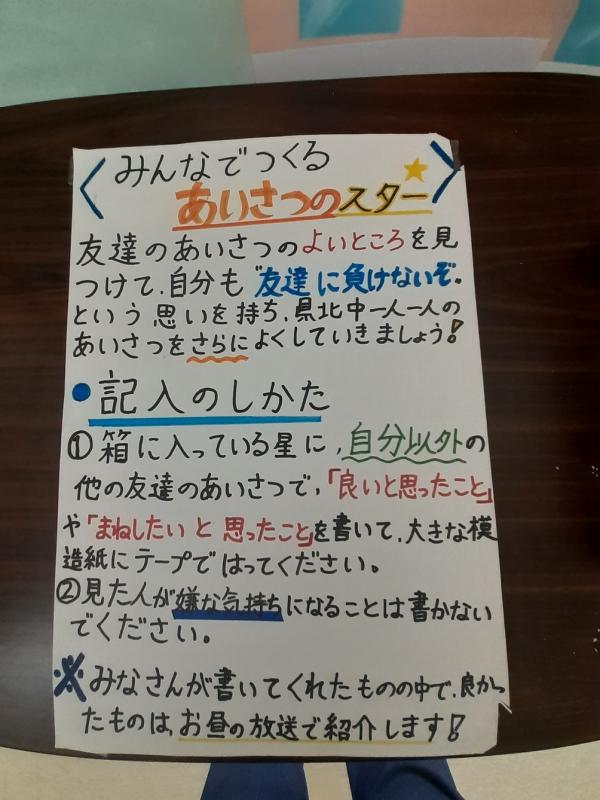 〈みんなでつくる
あいさつのスター〉
友達のあいさつのよいところを見
つけて、自分も〝友達に負けないぞ〟
という思いを持ち、県北中一人一人の
あいさつをさらによくしていきましょう!
●記入のしかた
①箱に入っている星に、自分以外の
他の友達のあいさつで、「良いと思ったこと」
や「まねしたいと思ったこと」を書いて、大きな模
造紙にテープではってください。
②見た人が嫌な気持ちになることは書かない
でください。
※みなさんが書いてくれたものの中で、良かっ
たものは、お昼の放送で紹介します!